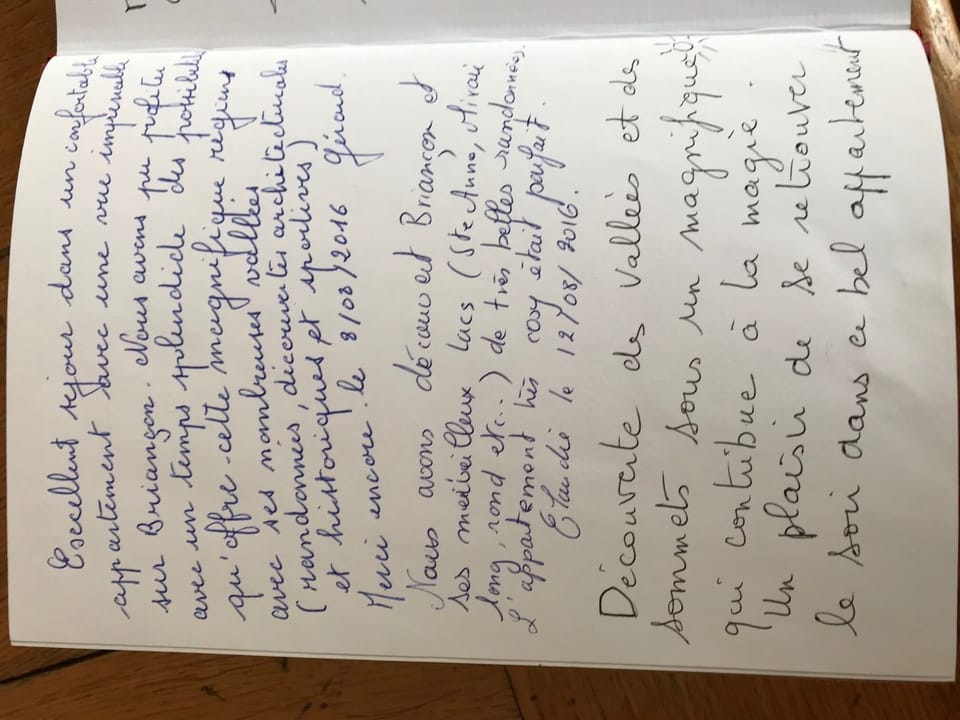 Excellent séjour dans un confortable
appartement avec une vue imprenable
sur Briançon. Nous avons pu profiter
avec un temps splendide des possibilités
qu'offre cette magnifique région
avec ses nombreuses vallées
(randonnées, découvertes architecturales
et historiques et sportives)
Merci encore. le 8/08/2016 Gérard.
Nous avons découvert Briançon et
ses merveilleux lacs (Ste Anne, Miroir
long, rond etc..) de très belles randonnées.
L'appartement très cosy était parfait.
Elaudie le 12/08/2016.
Découverte de vallées et de
sommets sous un magnifique
qui contribue à la magie.
Un plaisir de se retrouver
le soir dans ce bel appartement